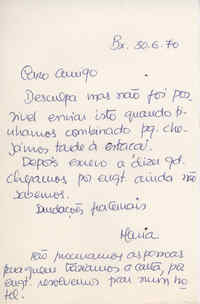 Bx. 30.6.70
Caro amigo
Desculpa mas não foi pos-
sível enviar isto quando ti-
nhamos combinado pq. che-
gámos tarde à estação.
Depois escrevo a dizer qd.
chegamos por enqt ainda não
sabemos.
Saudações fraternais
Maria
não precisamos as
para quem trazíamos a carta, por
enqt. resolvemos ficar num ho-
tel.